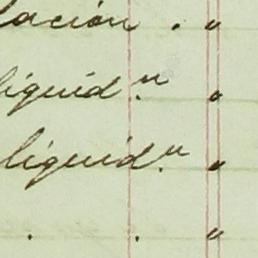 lación . "
liquid.n "
liquid.n "
. . "